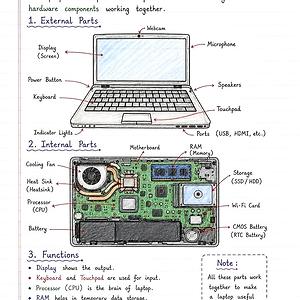 hardware components working together.
1. External Parts
Webcam
Display
(Screen)
Microphone
Power Button
Speakers
Keyboard
Touchpad
Indicator Lights
Ports (USB, HDMI, etc.)
2. Internal Parts
Motherboard
RAM
(Memory)
Cooling Fan
Heat Sink
(Heatsink)
Storage
(SSD/HDD)
Processor
(CPU)
Wi-Fi Card
Battery
CMOS Battery
(RTC Battery)
3. Functions
• Display shows the output.
• Keyboard and Touchpad are used for input.
• Processor (CPU) is the brain of laptop.
• RAM helps in temporary data storage.
Note:
All these parts work
together to make
a laptop useful